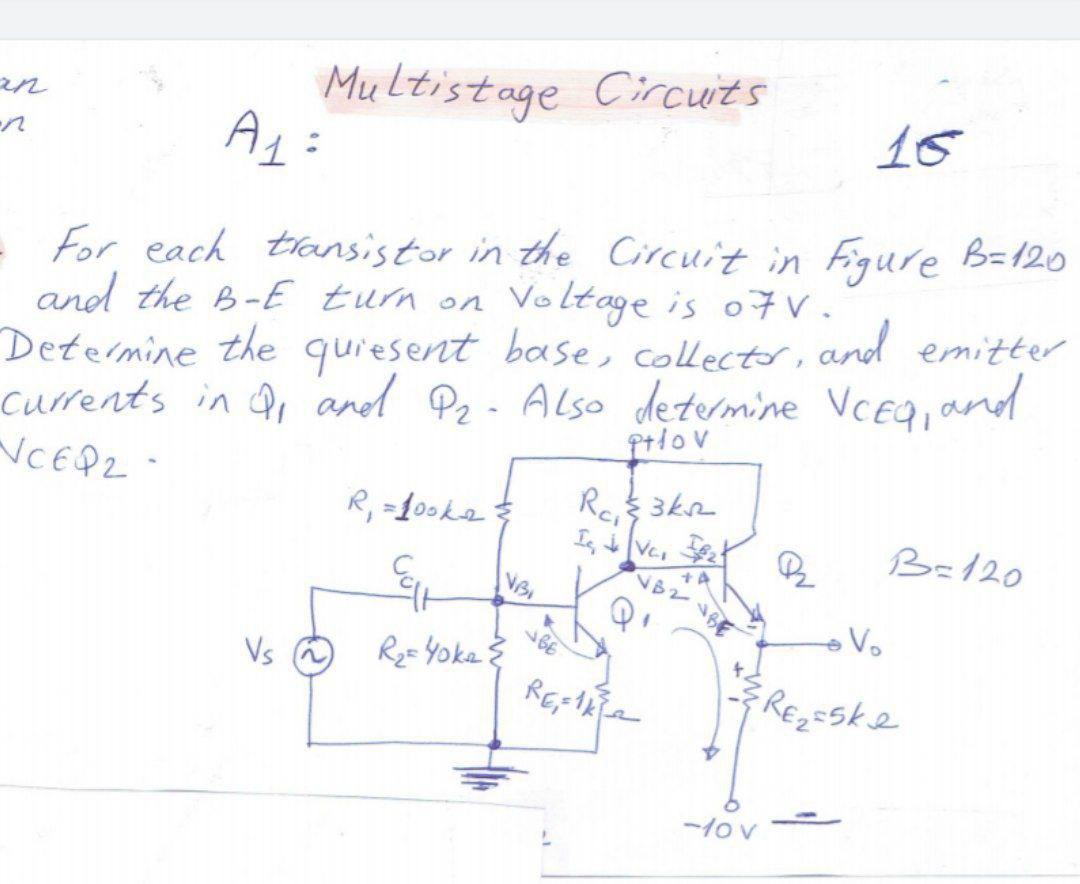 an
Multistage Circuits
n
A1:
15
For each transistor in the Circuit in Figure B=120
and the B-E turn on Voltage is 07V.
Determine the quiesent base, collector, and emitter
currents in Q1 and Q2. Also determine VCEQ1, and
VCEQ2.
+10V
R1=100kΩ
RC1 3kΩ
VC1
IB2
Q2
B=120
CC
VB1
VB2
+
VBE
-
Q1
VBE
Vo
Vs
R2=40kΩ
RE1=1kΩ
+
-
RE2=5kΩ
-10V